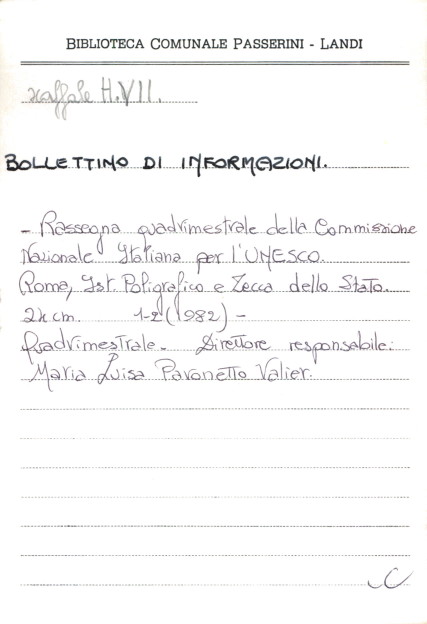 BIBLIOTECA COMUNALE PASSERINI - LANDI
scaffale H.VII.
BOLLETTINO DI INFORMAZIONI.
- Rassegna quadrimestrale della Commissione
Nazionale Italiana per l'UNESCO.
Roma, Ist. Poligrafico e Zecca dello Stato.
24 cm. 1-2 (1982) -
Quadrimestrale. Direttore responsabile:
Maria Luisa Pavonetto Valier.